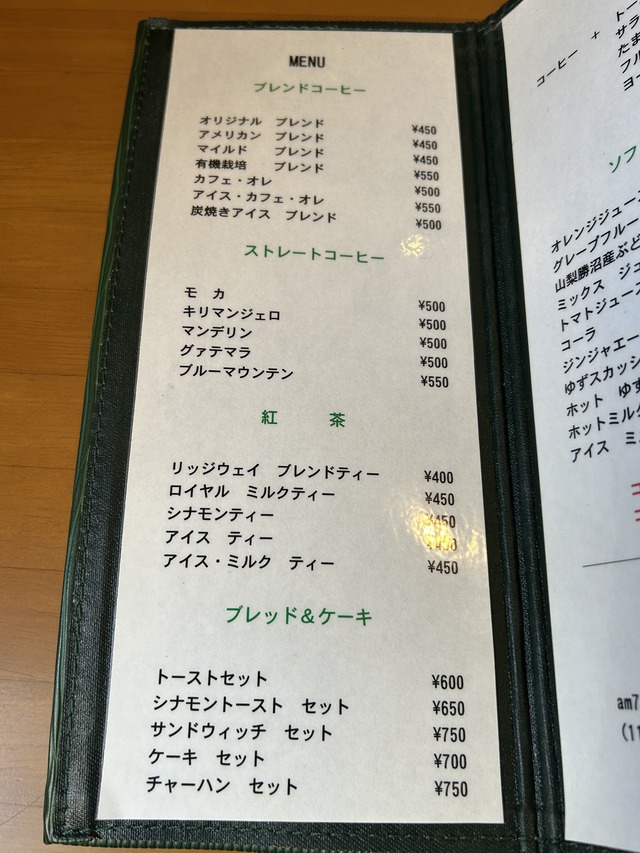 MENU
ブレンドコーヒー
オリジナル ブレンド ¥450
アメリカン ブレンド ¥450
マイルド ブレンド ¥450
有機栽培 ブレンド ¥550
カフェ・オレ ¥500
アイス・カフェ・オレ ¥550
炭焼きアイス ブレンド ¥500
ストレートコーヒー
モ カ ¥500
キリマンジェロ ¥500
マンデリン ¥500
グァテマラ ¥500
ブルーマウンテン ¥550
紅 茶
リッジウェイ ブレンドティー ¥400
ロイヤル ミルクティー ¥450
シナモンティー ¥450
アイス ティー
アイス・ミルク ティー ¥450
ブレッド&ケーキ
トーストセット ¥600
シナモントースト セット ¥650
サンドウィッチ セット ¥750
ケーキ セット ¥700
チャーハン セット ¥750
コーヒー +
トー
サラ
たま
フル
ヨー
ソフ
オレンジジュース
グレープフルー
山梨勝沼産ぶど
ミックス ジュ
トマトジュース
コーラ
ジンジャエー
ゆずスカッシ
ホット ゆず
ホットミルク
アイス ミ
am7
(11